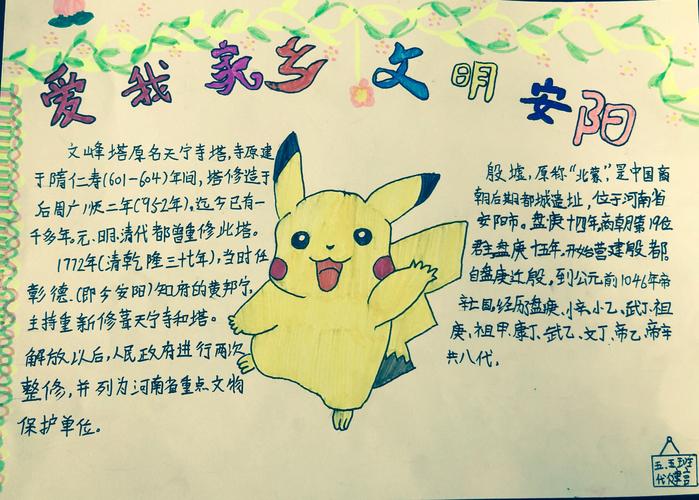 爱我家乡 文明安阳
文峰塔原名天宁寺塔,寺原建
于隋仁寿(601-604)年间,塔修造于
后周广顺二年(952年),迄今已有一
千多年,元、明、清代都曾重修此塔。
1772年(清乾隆三十七年),当时任
彰德(即今安阳)知府的黄邦宁,
主持重新修葺天宁寺和塔。
解放以后,人民政府进行两次
整修,并列为河南省重点文物
保护单位。
殷墟,原称“北蒙”,是中国商
朝后期都城遗址,位于河南省
安阳市。盘庚十四年,商朝第19位
君主盘庚十五年,开始营建殷都,
自盘庚迁殷,到公元前1046年帝
辛亡国,经历盘庚、小辛、小乙、武丁、祖
庚、祖甲、康丁、武乙、文丁、帝乙、帝辛
共八代。
五.五班